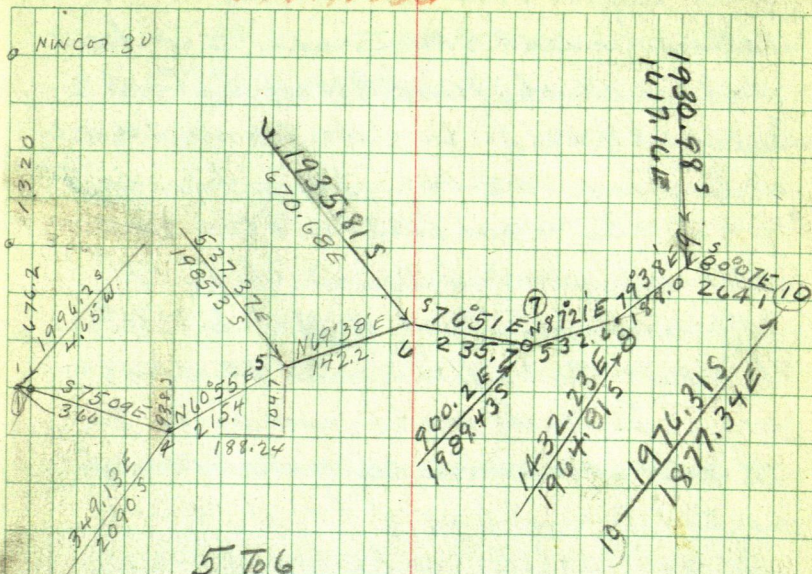 NW Cor 30
1320
676.2
1996.2 S
4.65 W.
S 75°09 E
366
4
938 S
349.13 E
2090. S
N 60°55 E
215.4
188.24
1047
5
537.37 E
1985.3 S
N 69°38' E
142.2
1935.81 S
670.68 E
6
S 76°51' E
235.7
7
900.2 E
1989.43 S
N 87°21' E
532.6
8
1432.23 E
1964.81 S
79°38' E
188.0
9
1930.98 S
1617.16 E
S 80°07' E
264.1
10
1976.31 S
1877.34 E
10
5 To 6